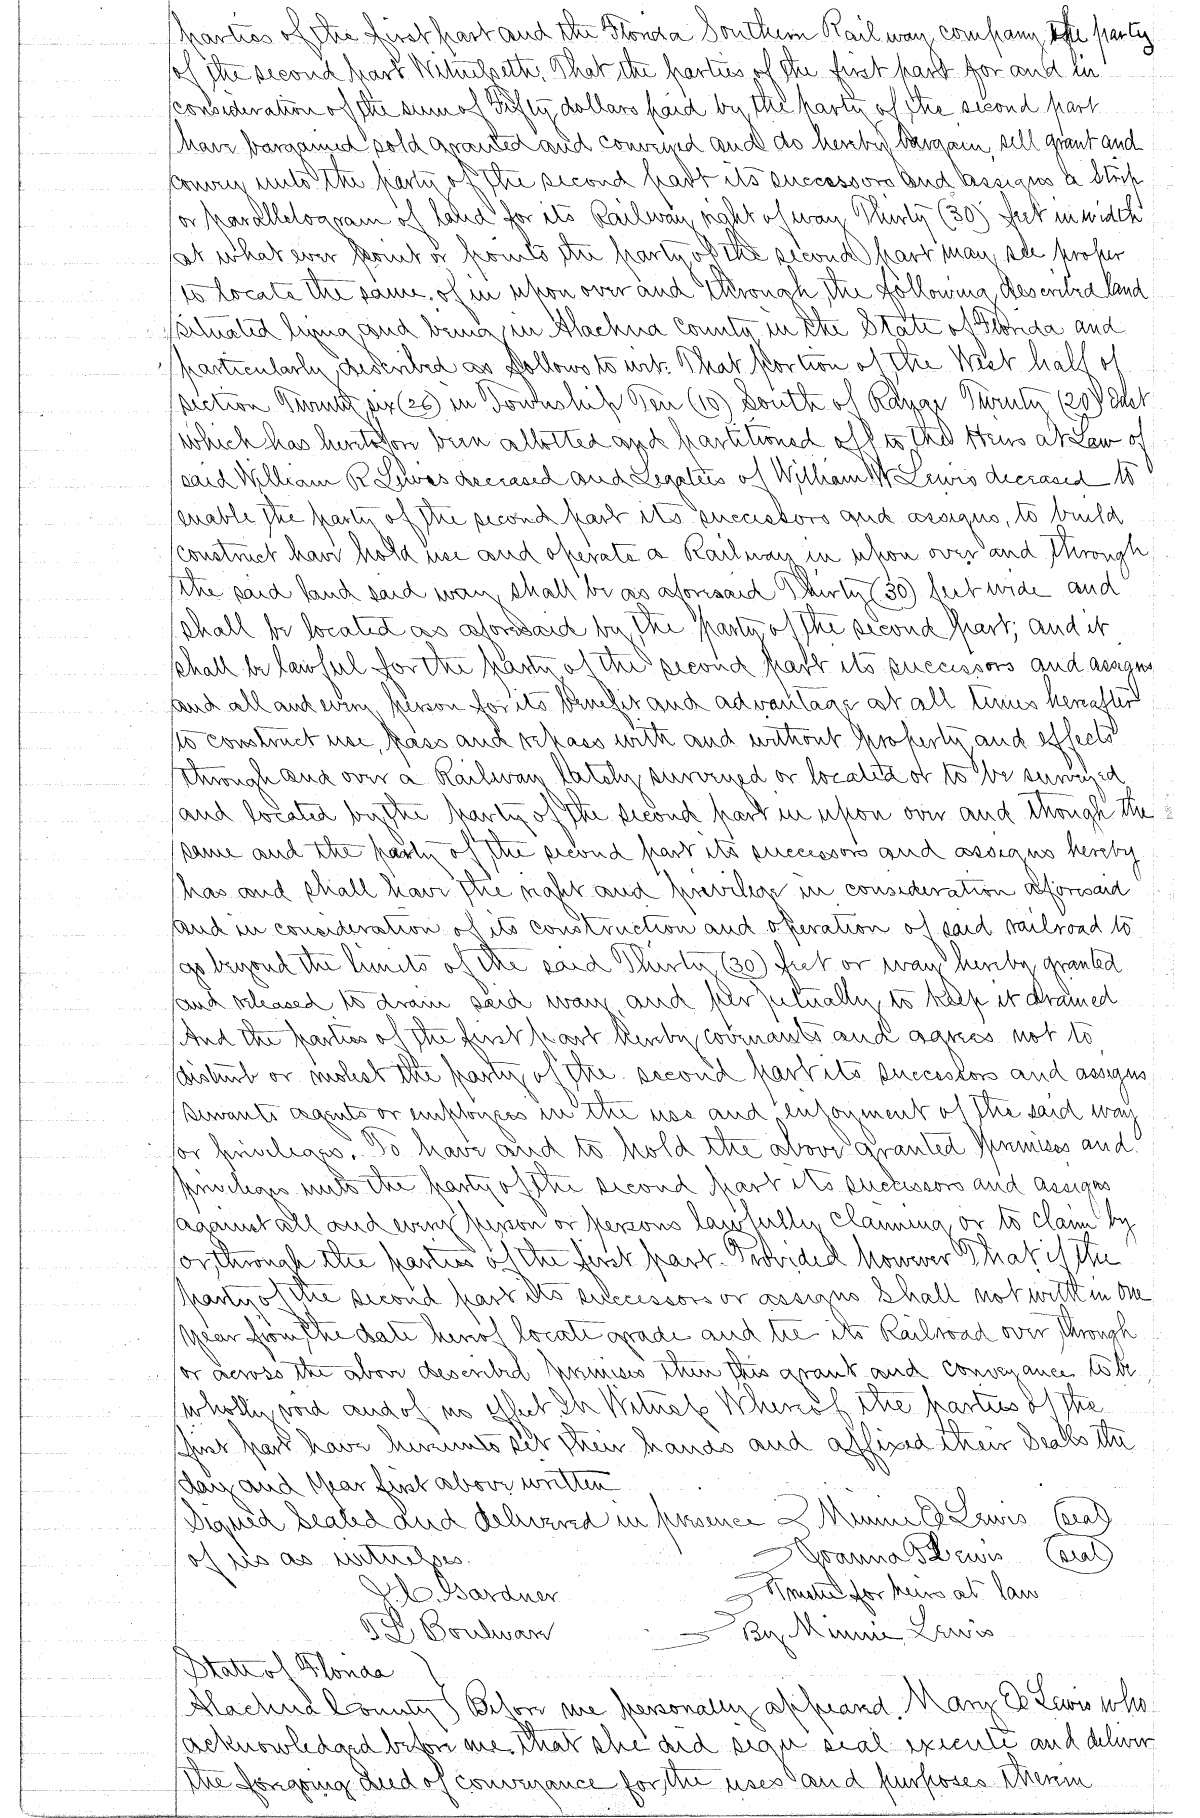 parties of the first part and the Florida Southern Railway company the party
of the second part Witnesseth, That the parties of the first part for and in
consideration of the sum of Fifty dollars paid by the party of the second part
have bargained sold granted and conveyed and do hereby bargain, sell grant and
convey unto the party of the second part its successors and assigns a Strip
or parallelogram of land for its Railway right of way Thirty (30) feet in width
at what ever point or points the party of the second part may see proper
to locate the same. of in upon over and through the following described land
situated lying and being in Alachua County in the State of Florida and
particularly described as follows to wit: That portion of the West half of
section Twenty six (26) in Township Ten (10) South of Range Twenty (20) East
which has heretofore been allotted and partitioned off to the Heirs at Law of
said William R Lewis deceased and Legatees of William W Lewis deceased to
enable the party of the second part its successors and assigns, to build
construct have hold use and operate a Railway in upon over and through
the said land said way shall be as aforesaid Thirty (30) feet wide and
shall be located as aforesaid by the party of the second part; and it
shall be lawful for the party of the second part its successors and assigns
and all and every person for its benefit and advantage at all times hereafter
to construct use, pass and repass with and without property and effects
through and over a Railway lately surveyed or located or to be surveyed
and located by the party of the second part in upon over and though the
same and the party of the second part its successors and assigns hereby
has and shall have the right and privilege in consideration aforesaid
and in consideration of its construction and operation of said railroad to
go beyond the limits of the said Thirty (30) feet or way hereby granted
and released to drain said way and perpetually to keep it drained
And the parties of the first part hereby covenants and agrees not to
disturb or molest the party of the second part its successors and assigns
servants agents or employees in the use and enjoyment of the said way
or privileges. To have and to hold the above granted premises and
privileges unto the party of the second part its successors and assigns
against all and every person or persons lawfully claiming or to claim by
or through the parties of the first part. Provided however That if the
party of the second part its successors or assigns Shall not with in one
year from the date hereof locate grade and tie its Railroad over through
or across the above described premises then this grant and conveyance to be
wholly void and of no effect In Witness Whereof the parties of the
first part have hereunto set their hands and affixed their Seals the
day and year first above written
Signed Sealed and delivered in presence Minnie E Lewis (seal)
of us as witnesses. Joanna P Lewis (seal)
J. C. Gardner Trustee for heirs at law
T L Boulware By Minnie Lewis
State of Florida )
Alachua County ) Before me personally appeared Mary E Lewis who
acknowledged before me that she did sign seal execute and deliver
the foregoing deed of conveyance for the uses and purposes therein